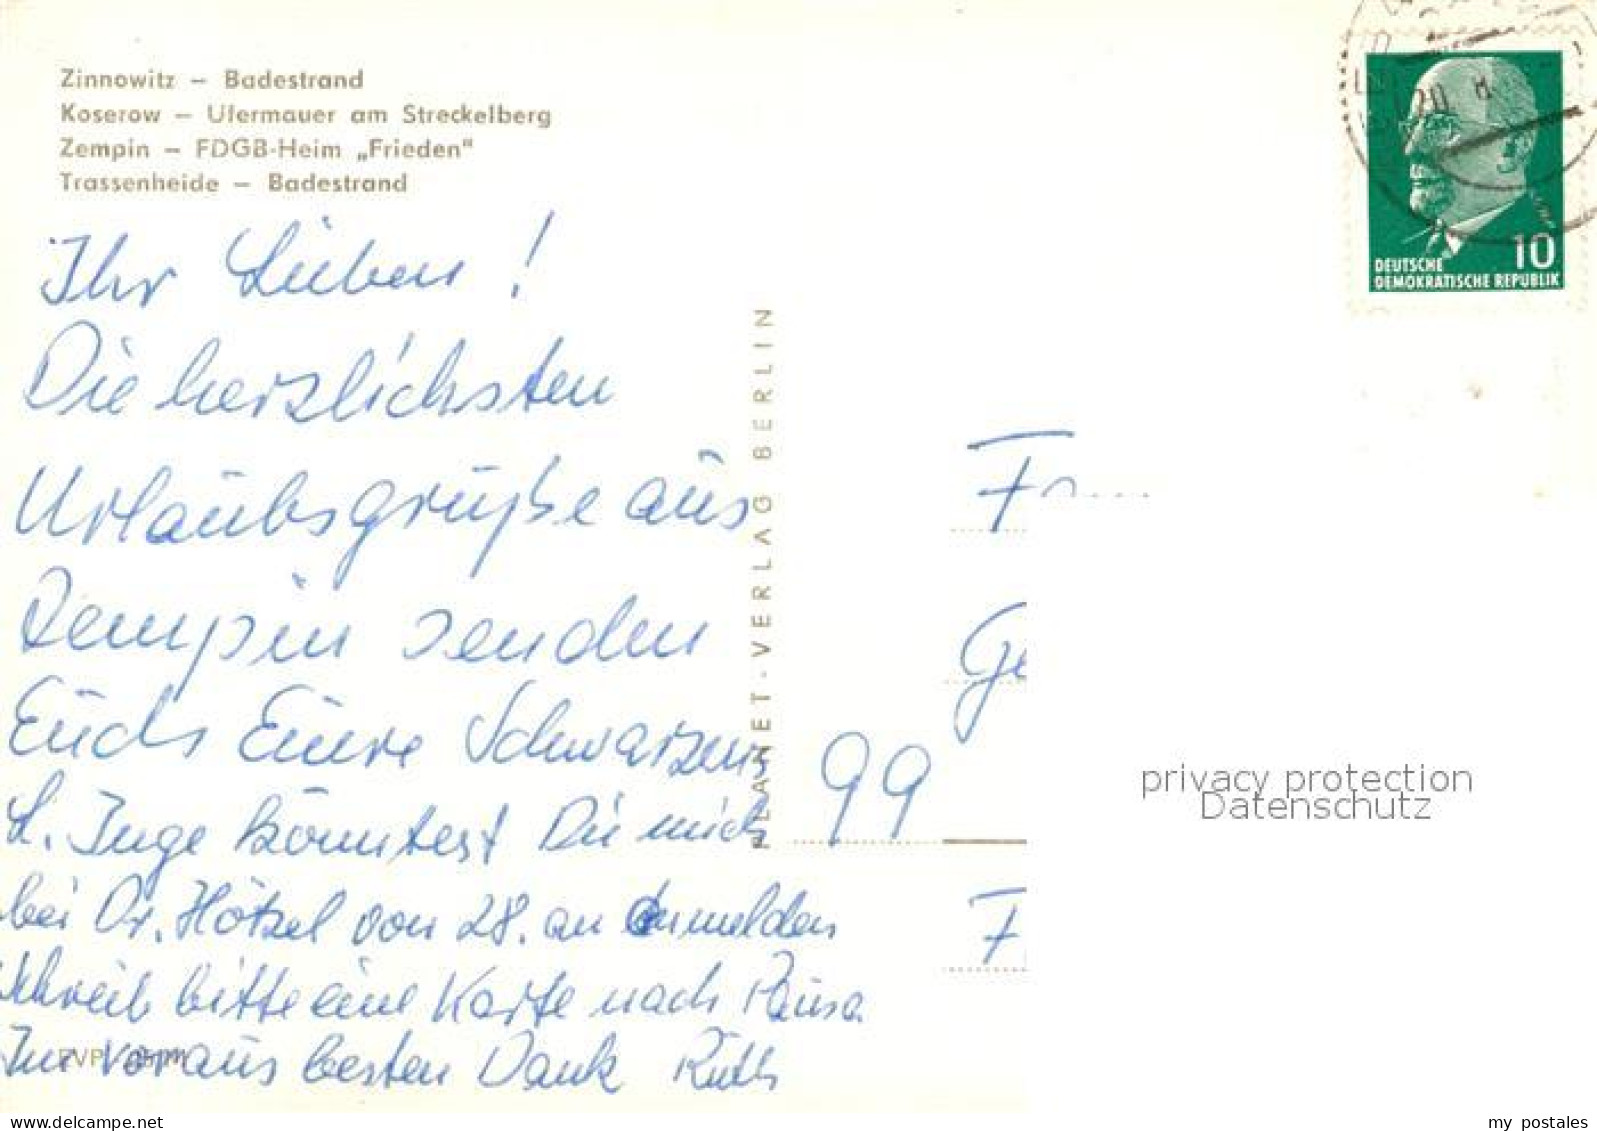 Zinnowitz – Badestrand
Koserow – Ufermauer am Streckelberg
Zempin – FDGB-Heim „Frieden"
Trassenheide – Badestrand
Ihr Lieben!
Die herzlichsten
Urlaubsgrüße aus
Zempin senden
Euch Eure Schwarzens
L. Inge könntest Du mich
bei Dr. Hötzel von 28. an anmelden
schreib bitte eine Karte nach Pausa.
Im voraus besten Dank Ruth
PLANET-VERLAG BERLIN
10
DEUTSCHE
DEMOKRATISCHE REPUBLIK
Ge
99
F
privacy protection
Datenschutz
delcampe.net
my_postales